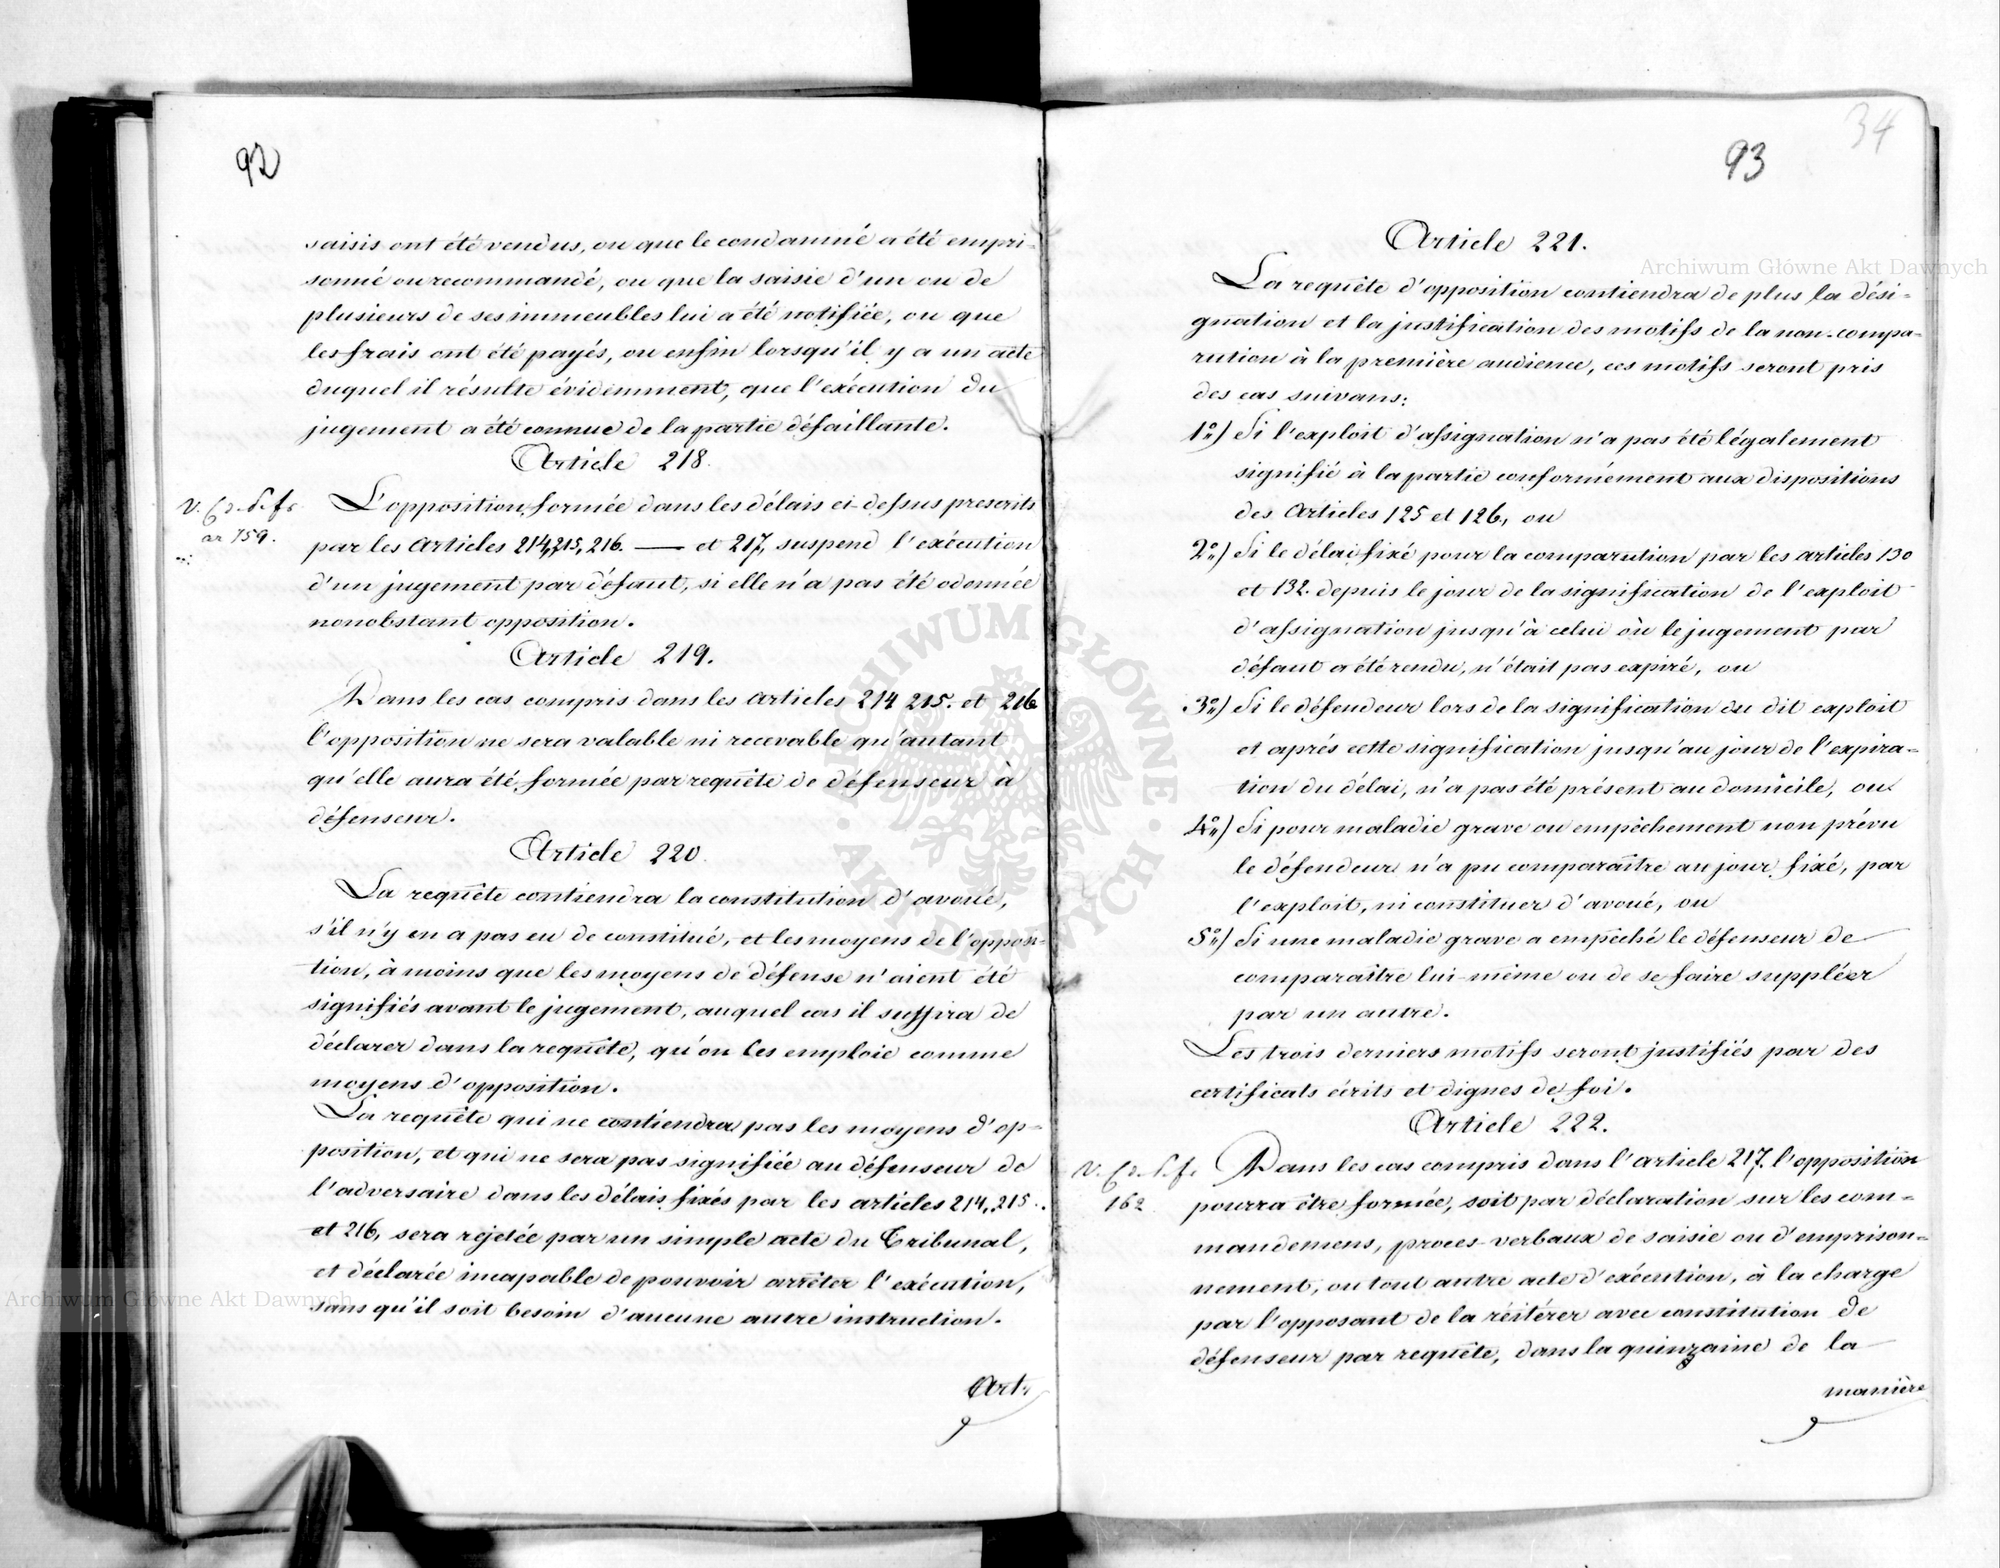 92
saisis ont été vendus, ou que le condamné a été empri-
sonné ou recommandé, ou que la saisie d'un ou de
plusieurs de ses immeubles lui a été notifiée, ou que
les frais ont été payés, ou enfin lorsqu'il y a un acte
duquel il résulte évidemment, que l'exécution du
jugement a été connue de la partie défaillante.
Article 218.
V. C. d. P. f.
ar 159.
L'opposition formée dans les délais ci-dessus prescrits
par les Articles 214, 215, 216. — et 217, suspend l'exécution
d'un jugement par défaut, si elle n'a pas été odonnée
nonobstant opposition.
Article 219.
Dans les cas compris dans les articles 214 215. et 216
l'opposition ne sera valable ni recevable qu'autant
qu'elle aura été formée par requête de défenseur à
défenseur.
Article 220.
La requête contiendra la constitution d'avoué,
s'il n'y en a pas eu de constitué, et les moyens de l'opposi-
tion, à moins que les moyens de défense n'aient été
signifiés avant le jugement, auquel cas il suffira de
déclarer dans la requête, qu'on les emploie comme
moyens d'opposition.
La requête qui ne contiendra pas les moyens d'op-
position, et qui ne sera pas signifiée au défenseur de
l'adversaire dans les délais fixés par les articles 214, 215.
et 216, sera rejetée par un simple acte du Tribunal,
et déclarée incapable de pouvoir arrêter l'exécution,
sans qu'il soit besoin d'aucune autre instruction.
Art:
34
93
Article 221.
La requête d'opposition contiendra de plus la dési-
gnation et la justification des motifs de la non-compa-
rution à la première audience, ces motifs seront pris
des cas suivans:
1°) Si l'exploit d'assignation n'a pas été légalement
signifié à la partie conformément aux dispositions
des Articles 125 et 126, ou
2°) Si le délai fixé pour la comparution par les articles 130
et 132. depuis le jour de la signification de l'exploit
d'assignation jusqu'à celui où le jugement par
défaut a été rendu, n'était pas expiré, ou
3°) Si le défendeur lors de la signification du dit exploit
et après cette signification jusqu'au jour de l'expira-
tion du délai, n'a pas été présent au domicile, ou
4°) Si pour maladie grave ou empêchement non prévu
le défendeur n'a pu comparaître au jour fixé, par
l'exploit, ni constituer d'avoué, ou
5°) Si une maladie grave a empêché le défenseur de
comparaître lui-même ou de se faire suppléer
par un autre.
Les trois derniers motifs seront justifiés par des
certificats écrits et dignes de foi.
Article 222.
V. C. d. P. f.
162
Dans les cas compris dans l'article 217. l'opposition
pourra être formée, soit par déclaration sur les com-
mandemens, procès-verbaux de saisie ou d'emprison-
nement, ou tout autre acte d'exécution, à la charge
par l'opposant de la réitérer avec constitution de
défenseur par requête, dans la quinzaine de la
manière
Archiwum Główne Akt Dawnych
Archiwum Główne Akt Dawnych
ARCHIWUM GŁÓWNE AKT DAWNYCH